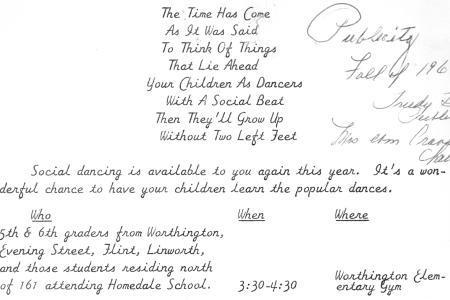 The Time Has Come
As It Was Said
To Think Of Things
That Lie Ahead
Your Children As Dancers
With A Social Beat
Then They'll Grow Up
Without Two Left Feet
Publicity
Fall of 196
Trudy
Mrs
Social dancing is available to you again this year. It's a won-
derful chance to have your children learn the popular dances.
Who When Where
5th & 6th graders from Worthington,
Evening Street, Flint, Linworth,
and those students residing north
of 161 attending Homedale School. 3:30-4:30 Worthington Elem-
entary Gym